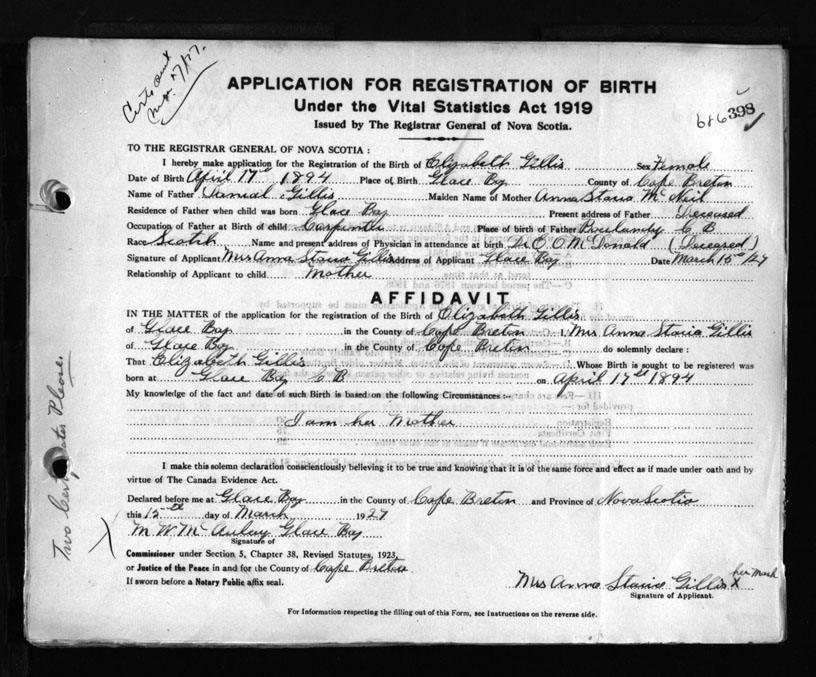 Certs sent
Mar. 17/27.
APPLICATION FOR REGISTRATION OF BIRTH
Under the Vital Statistics Act 1919
Issued by The Registrar General of Nova Scotia.
686 398
TO THE REGISTRAR GENERAL OF NOVA SCOTIA :
I hereby make application for the Registration of the Birth of Elizabeth Gillis Sex Female
Date of Birth April 17th 1894 Place of Birth Glace Bay County of Cape Breton
Name of Father Danial Gillis Maiden Name of Mother Anna Stacia McNeil
Residence of Father when child was born Glace Bay Present address of Father Deceased
Occupation of Father at Birth of child Carpenter Place of birth of Father C B
Race Scotch Name and present address of Physician in attendance at birth Dr E. O. McDonald (Deceased)
Signature of Applicant Mrs Anna Stacia Gillis Address of Applicant Glace Bay Date March 15th /27
Relationship of Applicant to child Mother
AFFIDAVIT
IN THE MATTER of the application for the registration of the Birth of Elizabeth Gillis
of Glace Bay in the County of Cape Breton I, Mrs Anna Stacia Gillis
of Glace Bay in the County of Cape Breton do solemnly declare :
That Elizabeth Gillis Whose Birth is sought to be registered was
born at Glace Bay C B on April 17th 1894
My knowledge of the fact and date of such Birth is based on the following Circumstances :-
I am her Mother
I make this solemn declaration conscientiously believing it to be true and knowing that it is of the same force and effect as if made under oath and by
virtue of The Canada Evidence Act.
Declared before me at Glace Bay in the County of Cape Breton and Province of Nova Scotia
this 15th day of March 1927
M W McAulay Glace Bay
Signature of
Commissioner under Section 5, Chapter 38, Revised Statutes, 1923,
or Justice of the Peace in and for the County of Cape Breton
If sworn before a Notary Public affix seal.
her Mark
Mrs Anna Stacia Gillis X
Signature of Applicant.
For Information respecting the filling out of this Form, see Instructions on the reverse side.
Two Certificates Please.